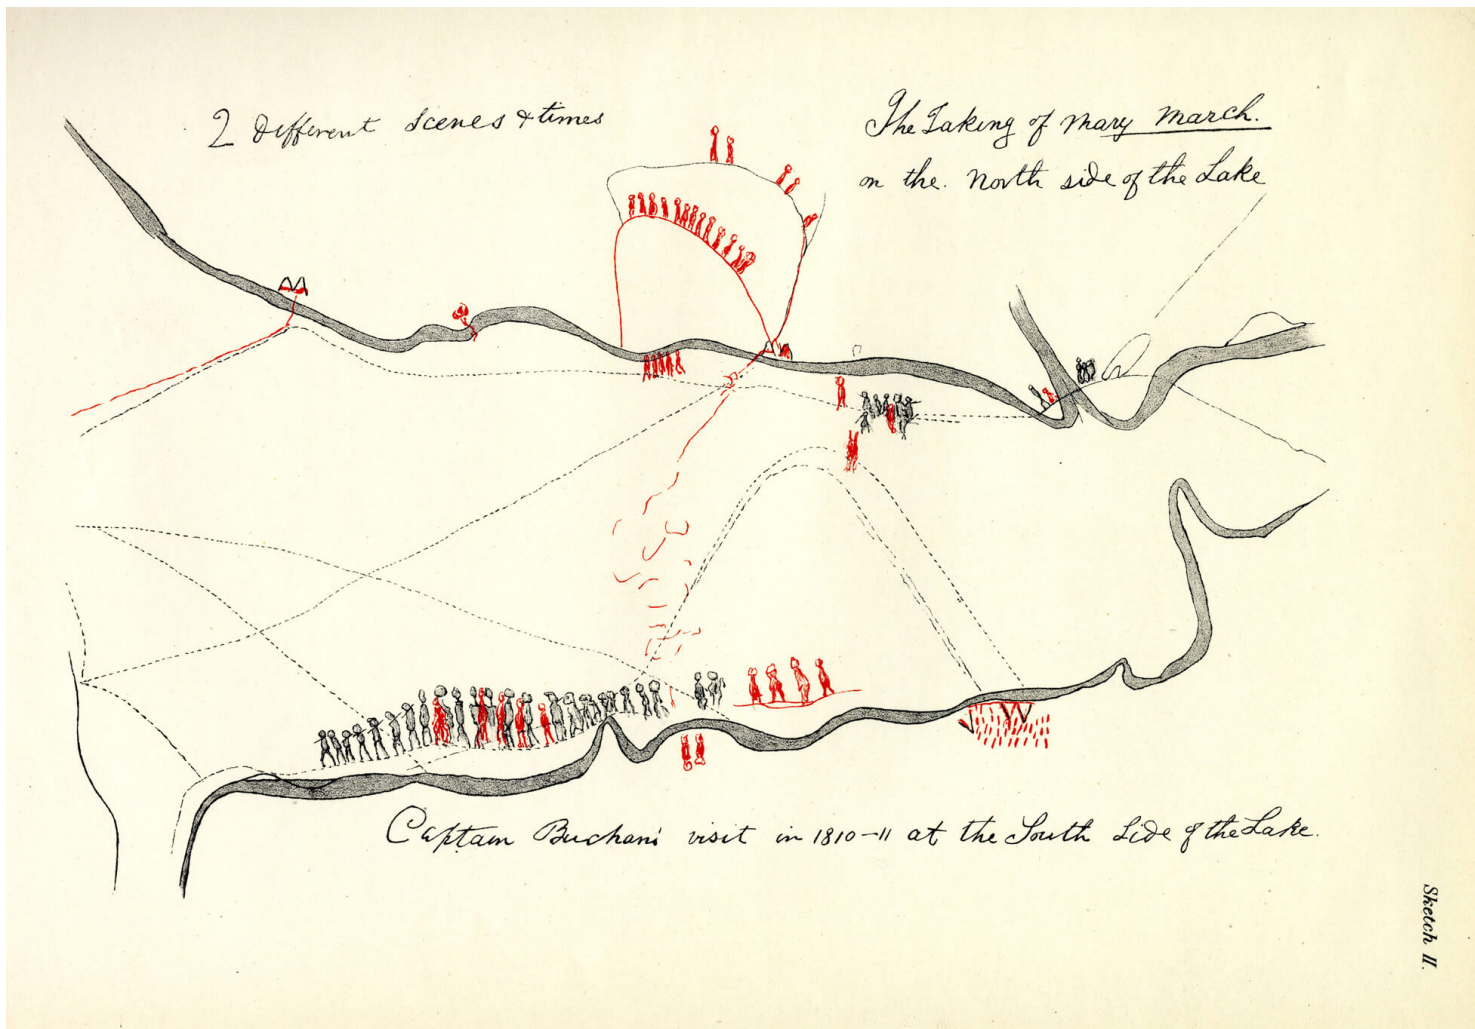 2 Different Scenes & times
The Taking of Mary March.
on the North side of the Lake
Captain Buchan's visit in 1810-11 at the South Side of the Lake.
Sketch II.